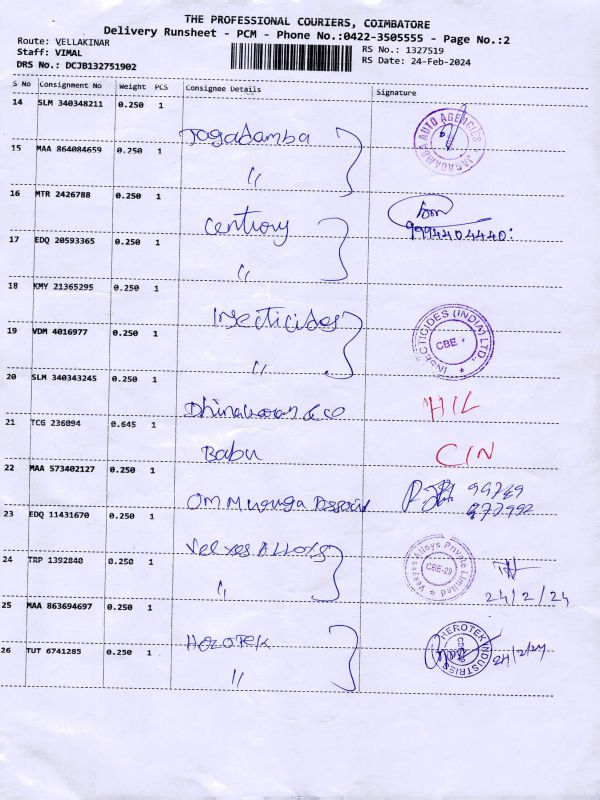 THE PROFESSIONAL COURIERS, COIMBATORE
Delivery Runsheet - PCM - Phone No.:0422-3505555 - Page No.:2
Route: VELLAKINAR
RS No.: 1327519
Staff: VIMAL
RS Date: 24-Feb-2024
DRS No.: DCJB132751902
S No Consignment No Weight PCS Consignee Details Signature
14 SLM 340348211 0.250 1
Jagadamba
JAGADAMBA AUTO AGENCIES
15 MAA 864084659 0.250 1
"
16 MTR 2426788 0.250 1
Centiory
9994404440
17 EDQ 20593365 0.250 1
"
18 KMY 21365295 0.250 1
Insecticides
INSECTICIDES (INDIA) LTD.
CBE
19 VDM 4016977 0.250 1
"
20 SLM 340343245 0.250 1
Dhinakaran & co HIL
21 TCG 236094 0.645 1
Babu CIN
22 MAA 573402127 0.250 1
OM Muruga Associ
23 EDQ 11431670 0.250 1
Vel yes Alloys
Velyes Alloys Private Limited
CBE-29
24 TRP 1392840 0.250 1
"
24/2/24
25 MAA 863694697 0.250 1
Herotek
HEROTEK INDUSTRIES
24/2/24
26 TUT 6741285 0.250 1
"